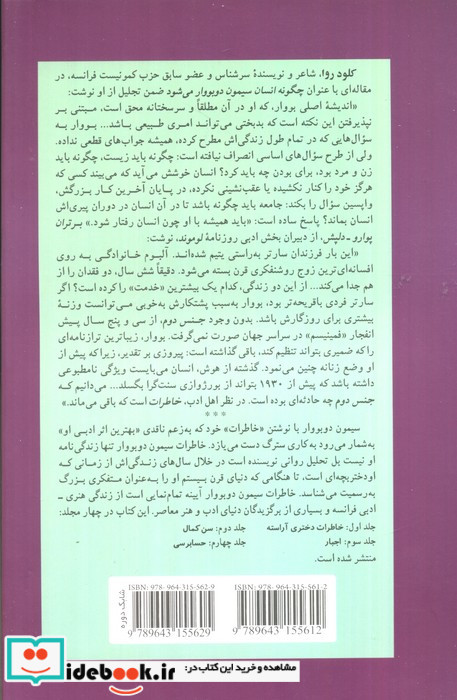 کلود روا، شاعر و نویسندهٔ سرشناس و عضو سابق حزب کمونیست فرانسه، در
مقاله‌ای با عنوان چگونه انسان سیمون دوبووار می‌شود ضمن تجلیل از او نوشت:
«اندیشهٔ اصلی بووار، که او در آن مطلقاً و سرسختانه محق است، مبتنی بر
نپذیرفتن این نکته است که بدبختی می‌تواند امری طبیعی باشد... بووار به
سؤال‌هایی که در تمام طول زندگی‌اش مطرح کرده، همیشه جواب‌های قطعی نداده.
ولی از طرح سؤال‌های اساسی انصراف نیافته است: چگونه باید زیست، چگونه باید
زن و مرد بود، برای بودن چه باید کرد؟ انسان خوشش می‌آید که می‌بیند کسی که
هرگز خود را کنار نکشیده یا عقب‌نشینی نکرده، در پایان آخرین کار بزرگش،
واپسین سؤال را بکند: جامعه باید چگونه باشد تا در آن انسان در دوران پیری‌اش
انسان بماند؟ پاسخ ساده است: «باید همیشه با او چون انسان رفتار شود.» برتران
پوارو ـ دلپش، از دبیران بخش ادبی روزنامهٔ لوموند، نوشت:
«این بار فرزندان سارتر به‌راستی یتیم شده‌اند. آلبوم خانوادگی به روی
افسانه‌ای‌ترین زوج روشنفکری قرن بسته می‌شود. دقیقاً شش سال، دو فقدان را از
هم جدا می‌کند... از این دو زندگی، کدام یک بیشترین «خدمت» را کرده است؟ اگر
سارتر فردی باقریحه‌تر بود، بووار به‌سبب پشتکارش به‌خوبی می‌توانست وزنهٔ
بیشتری برای روزگارش باشد. بدون وجود جنس دوم، از سی و پنج سال پیش
انفجار «فمینیسم» در سراسر جهان صورت نمی‌گرفت. بووار، زیباترین ترازنامه‌ای
را که ضمیری بتواند تنظیم کند، باقی گذاشته است: پیروزی بر تقدیر، زیرا که پیش از
او وضع زنانه چنین می‌نمود. گذشته از هوش، انسان می‌بایست ویژگی نامطبوعی
داشته باشد که پیش از ۱۹۳۰ بتواند از بورژوازی سنت‌گرا بگسلد... می‌دانیم که
جنس دوم چه حادثه‌ای بوده است. در نظر اهل ادب، خاطرات است که باقی می‌ماند.»
* * *
سیمون دوبووار با نوشتن «خاطرات» خود که به‌زعم ناقدی «بهترین اثر ادبی او»
به‌شمار می‌رود به‌کاری سترگ دست می‌یازد. خاطرات سیمون دوبووار تنها زندگی‌نامه
او نیست بل تحلیل روانی نویسنده است در خلال سال‌های زندگی‌اش از زمانی که
او دختربچه‌ای است، تا هنگامی که دنیای قرن بیستم او را به‌عنوان متفکری بزرگ
به‌رسمیت می‌شناسد. خاطرات سیمون دوبووار آیینه تمام‌نمایی است از زندگی هنری ـ
ادبی فرانسه و بسیاری از برگزیدگان دنیای ادب و هنر معاصر. این کتاب در چهار مجلد:
جلد اول: خاطرات دختری آراسته جلد دوم: سن کمال
جلد سوم: اجبار جلد چهارم: حسابرسی
منتشر شده است.
شابک دوره
ISBN: 978- 964-315-562-9
9 789643 155629
ISBN: 978- 964-315-561-2
9 789643 155612
مشاهده و خرید این کتاب در:
idebook.ir